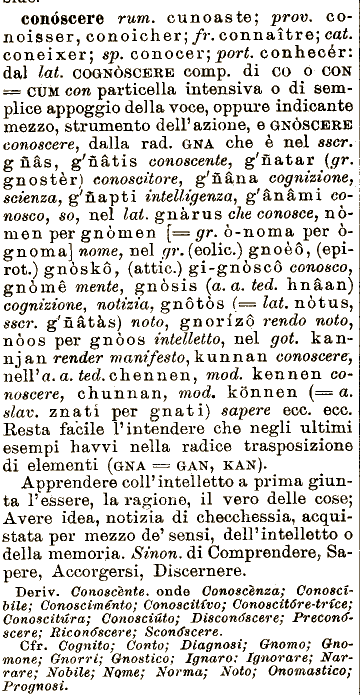 conóscere rum. cunoaste; prov. co-
noisser, conoicher; fr. connaître; cat.
coneixer; sp. conocer; port. conhecér:
dal lat. COGNÒSCERE comp. di CO o CON
= CUM con particella intensiva o di sem-
plice appoggio della voce, oppure indicante
mezzo, strumento dell'azione, e GNÒSCERE
conoscere, dalla rad. GNA che è nel sscr.
gñâs, g'ñâtis conoscente, g'ñatar (gr.
gnostèr) conoscitore, g'ñâna cognizione,
scienza, g'ñapti intelligenza, g'ânâmi co-
nosco, so, nel lat. gnàrus che conosce, nò-
men per gnòmen [= gr. ò-noma per ò-
gnoma] nome, nel gr. (eolic.) gnoèô, (epi-
rot.) gnòskô, (attic.) gi-gnòscô conosco,
gnômê mente, gnòsis (a. a. ted. hnâan)
cognizione, notizia, gnôtòs (= lat. nòtus,
sscr. g'ñâtàs) noto, gnorizô rendo noto,
nòos per gnòos intelletto, nel got. kan-
njan render manifesto, kunnan conoscere,
nell'a. a. ted. chennen, mod. kennen co-
noscere, chunnan, mod. können (= a.
slav. znati per gnati) sapere ecc. ecc.
Resta facile l'intendere che negli ultimi
esempi havvi nella radice trasposizione
di elementi (GNA = GAN, KAN).
Apprendere coll'intelletto a prima giun-
ta l'essere, la ragione, il vero delle cose;
Avere idea, notizia di checchessia, acqui-
stata per mezzo de' sensi, dell'intelletto o
della memoria. Sinon. di Comprendere, Sa-
pere, Accorgersi, Discernere.
Deriv. Conoscènte. onde Conoscènza; Conoscí-
bile; Conosciménto; Conoscitívo; Conoscitóre-tríce;
Conoscitúra; Conosciúto; Disconóscere; Preconó-
scere; Riconóscere; Sconóscere.
Cfr. Cognito; Conto; Diagnosi; Gnomo; Gno-
mone; Gnorri; Gnostico; Ignaro: Ignorare; Nar-
rare; Nobile; Nome; Norma; Noto; Onomastico;
Prognosi.